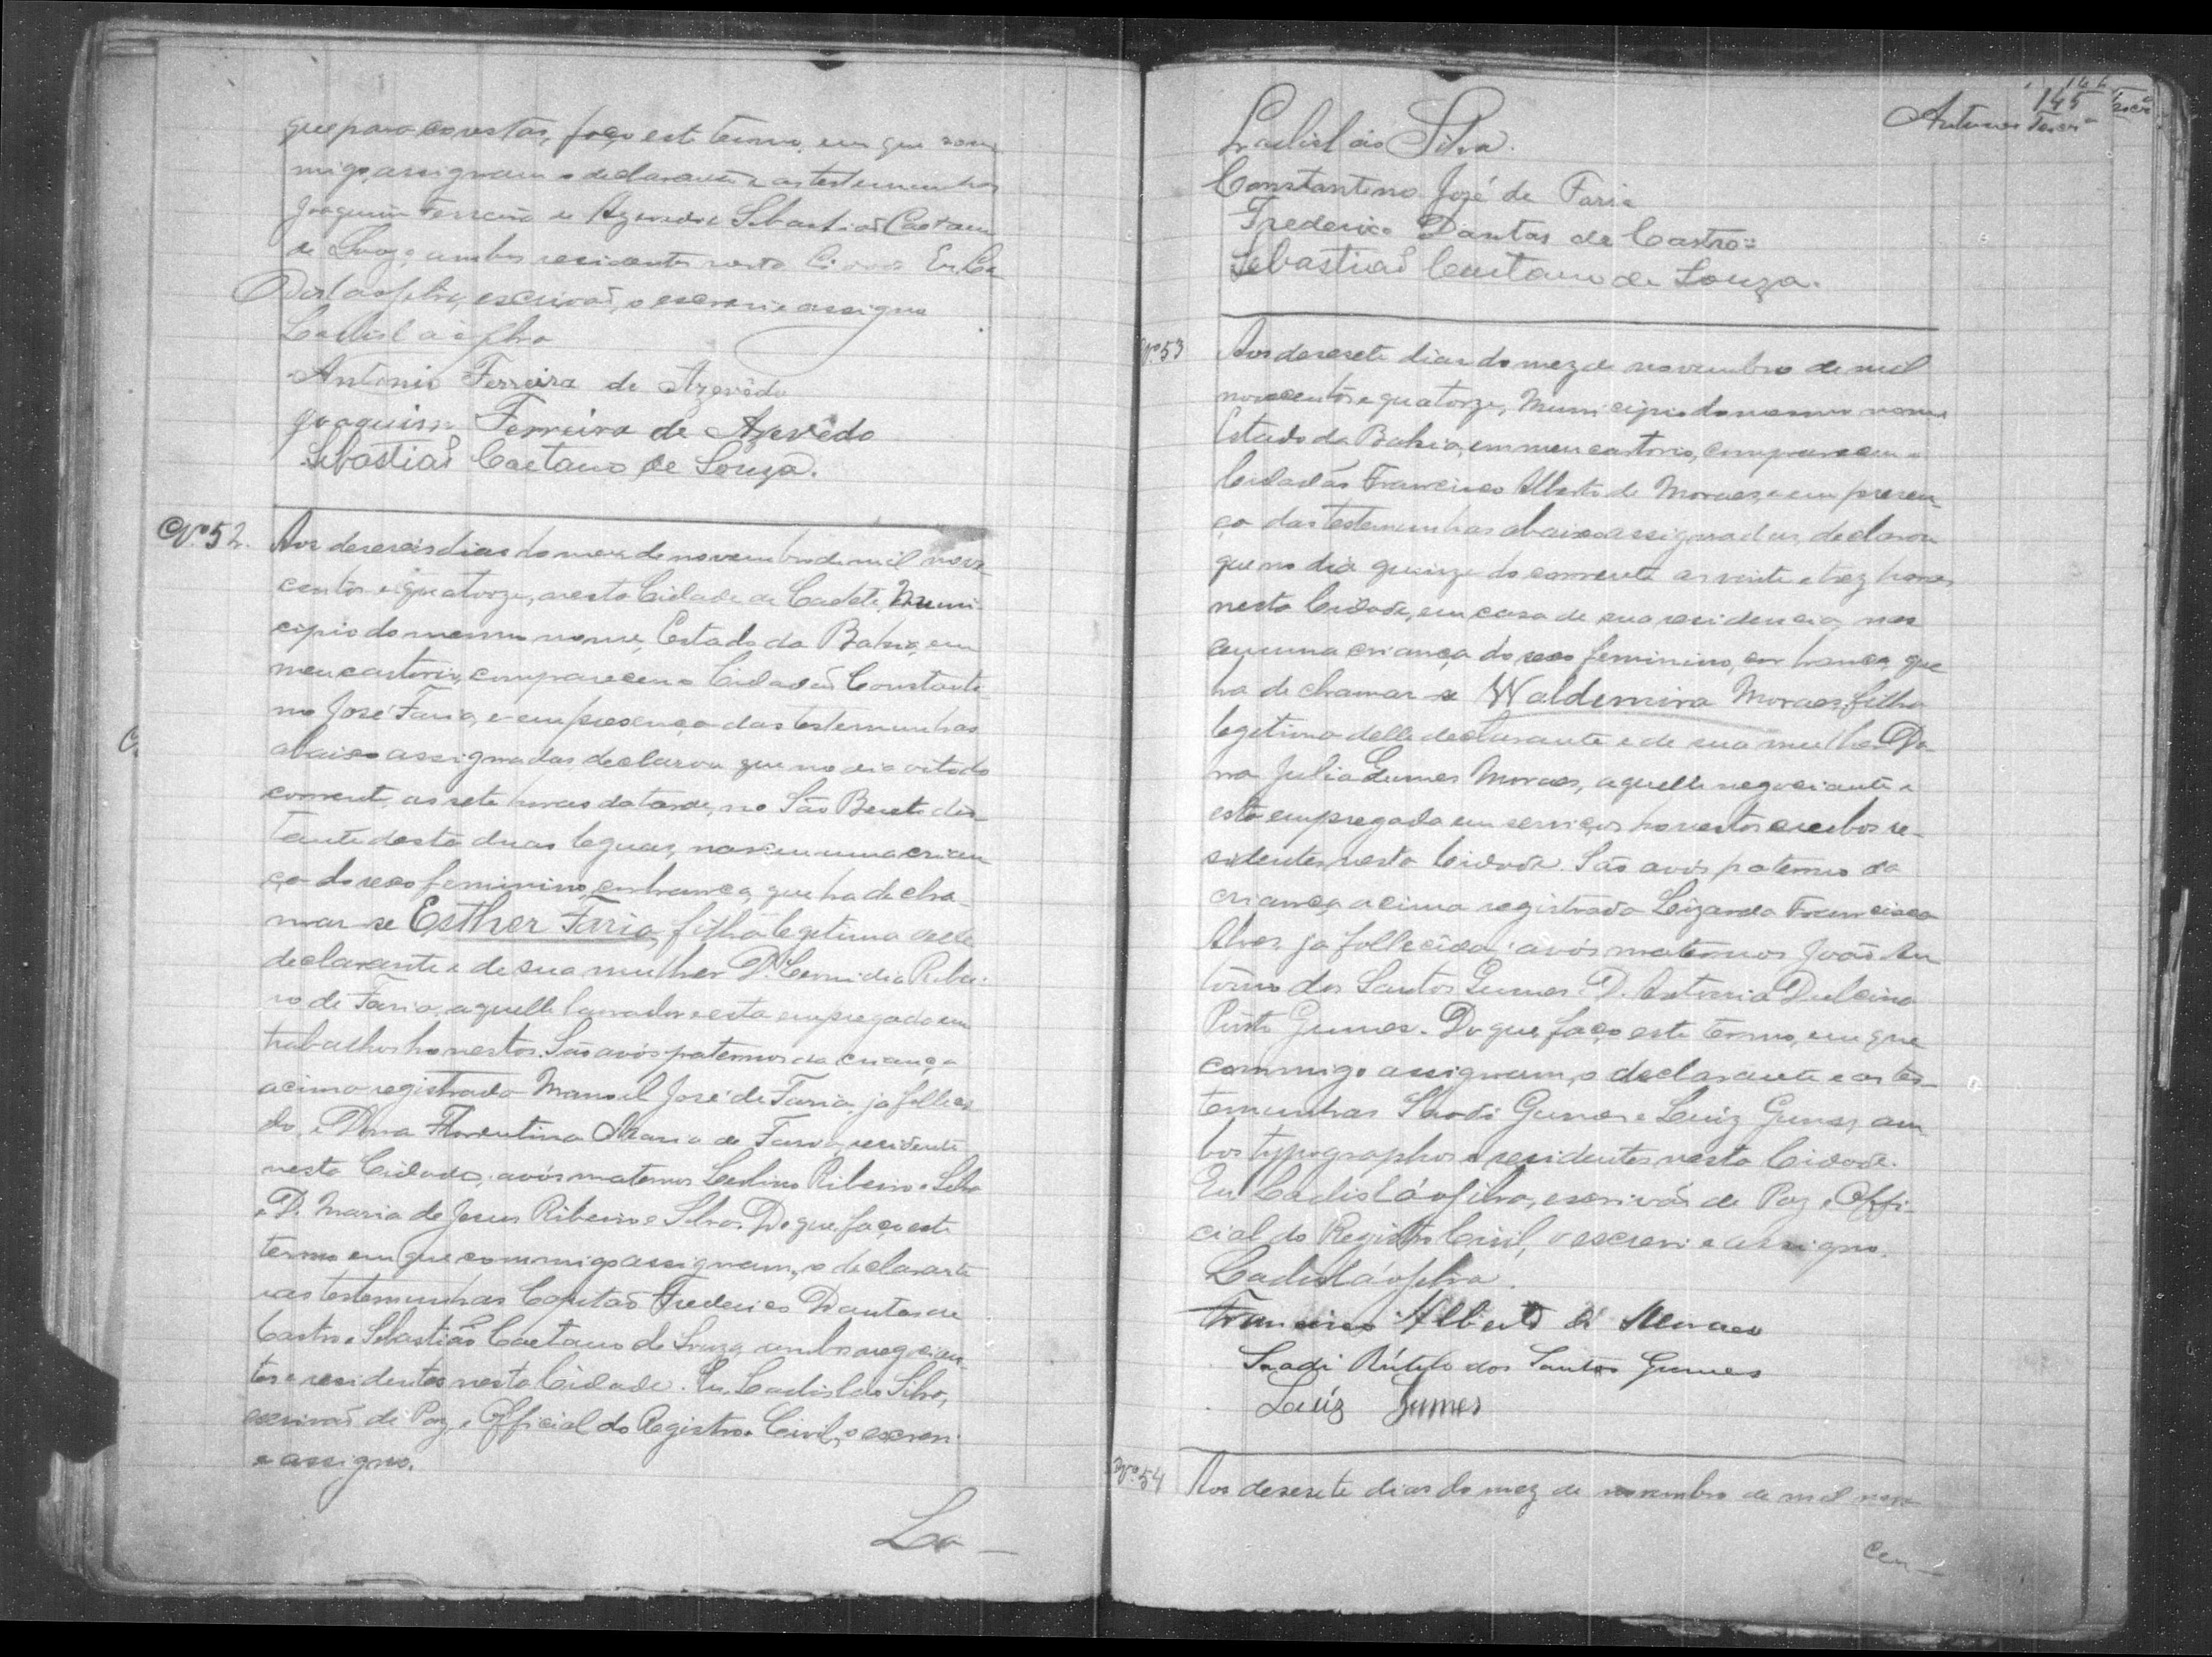 que para constar, faço este termo, em que com
migo, assignam o declarante e as testemunhas
Joaquim Ferreira de Azevedo e Sebastião Caetano
de Souza, ambos residentes nesta Cidade. Eu La
disláo Silva, escrivão, o escrevi e assigno
Ladisláo Silva
Antonio Ferreira de Azevêdo
Joaquim Ferreira de Azevêdo
Sebastião Caetano de Souza.
Nº 52. Aos deseseis dias do mez de novembro de mil nove
centos e quatorze, nesta Cidade de Caeteté, Muni
cipio do mesmo nome, Estado da Bahia, em
meu cartorio, compareceu o Cidadão Constanti
no José Faria, e em presença das testemunhas
abaixo assignadas, declarou que no dia oito do
corrente, as sete horas da tarde, no São Bento dis-
tante desta duas leguas, nasceu uma crian
ça do sexo feminino, cor branca, que ha de cha-
mar-se Esther Faria, filha legitima delle
declarante e de sua mulher D. Ribei-
ro de Faria, aquelle lavrador e esta empregada em
trabalhos honestos. São avós paternos da criança
acima registrada Manoel José de Faria, ja falleci
do, e Dona Florentina Maria de Faria, residente
nesta Cidade, avós maternos Ribeiro e Silva
e D. Maria de Jesus Ribeiro e Silva. Do que faço este
termo em que commigo assignam, o declarante
e as testemunhas Capitão Frederico Dantas de
Castro e Sebastião Caetano de Souza, ambos negocian-
tes e residentes nesta Cidade. Eu Ladisláo Silva,
escrivão de Paz e Official do Registro Civil, o escrevi
e assigno.
La-
145
Ladisláo Silva.
Constantino José de Faria
Frederico Dantas de Castro
Sebastião Caetano de Souza.
Nº 53 Aos desesete dias do mez de novembro de mil
novecentos e quatorze, Municipio do mesmo nome
Estado da Bahia, em meu cartorio, compareceu o
Cidadão Francisco Alberto de Moraes, e em presen-
ça das testemunhas abaixo assignadas, declarou
que no dia quinze do corrente as vinte e trez horas,
nesta Cidade, em casa de sua residencia, nas
ceu uma criança do sexo feminino, cor branca, que
ha de chamar-se Waldemira Moraes, filha
legitima delle declarante e de sua mulher Do
na Julia Gumes Moraes, aquelle negociante e
esta empregada em serviços honestos, ambos re-
sidentes nesta Cidade. São avós paternos da
criança acima registrada Francisca
Alves, ja fallecida; avós maternos João An
tônio dos Santos Gumes D. Antonia Dulcina
Pinto Gumes. Do que faço este termo, em que
commigo assignam, o declarante e as tes-
temunhas Saadi Gumes e Luiz Gumes, am
bos typographos e residentes nesta Cidade.
Eu Ladisláo Silva, escrivão de Paz e Offi-
cial do Registro Civil, o escrevi e assigno.
Ladisláo Silva.
Francisco Alberto de Moraes
Saadi Rútilo dos Santos Gumes
Luiz Gumes
Nº 54 Aos desesete dias do mez de novembro de mil nove
cen-